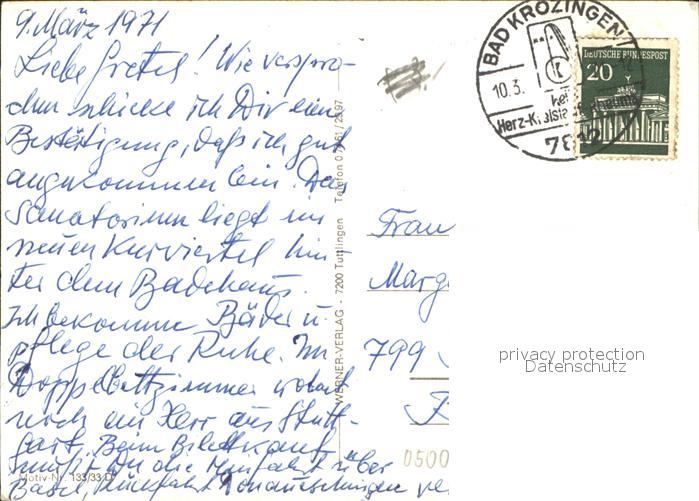 9. März 1971
Liebe Gretel! Wie verspro-
chen schicke ich Dir eine
Bestätigung, daß ich gut
angekommen bin. Das
Sanatorium liegt im
neuen Kurviertel hin-
ter dem Badehaus.
Ich bekomme Bäder u.
pflege der Ruhe. Im
Doppelbettzimmer wohnt
noch ein Herr aus Stutt-
gart. Beim Billettkauf
mußt Du die Hinfahrt über
Basel, Rückfahrt Donaueschingen ve
Motiv-Nr. 133/33 D
WERNER-VERLAG - 7200 Tuttlingen Telefon
BAD KROZINGEN
10.3.
Herz-Kreislauf Rheuma
DEUTSCHE BUNDESPOST
20
Frau
Marg
799
0500
privacy protection
Datenschutz